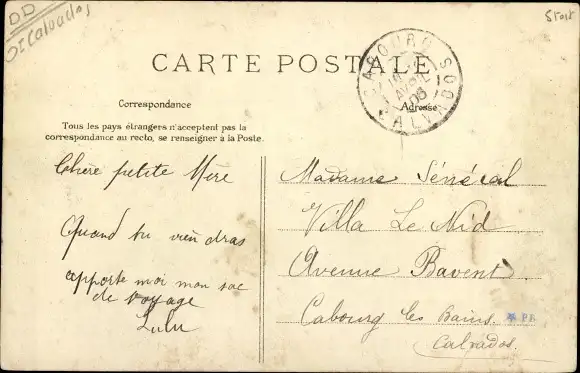 DD
St Calvados
CARTE POSTALE
CABOURG
AVRIL
06
CALVADOS
Correspondance
Adresse
Tous les pays étrangers n'acceptent pas la
correspondance au recto, se renseigner à la Poste.
Chère petite Mère
Quand tu viendras
apporte moi mon sac
de voyage
Lulu
Madame Sénécal
Villa Le Nid
Avenue Bavent
Cabourg les Bains.
Calvados.
PB